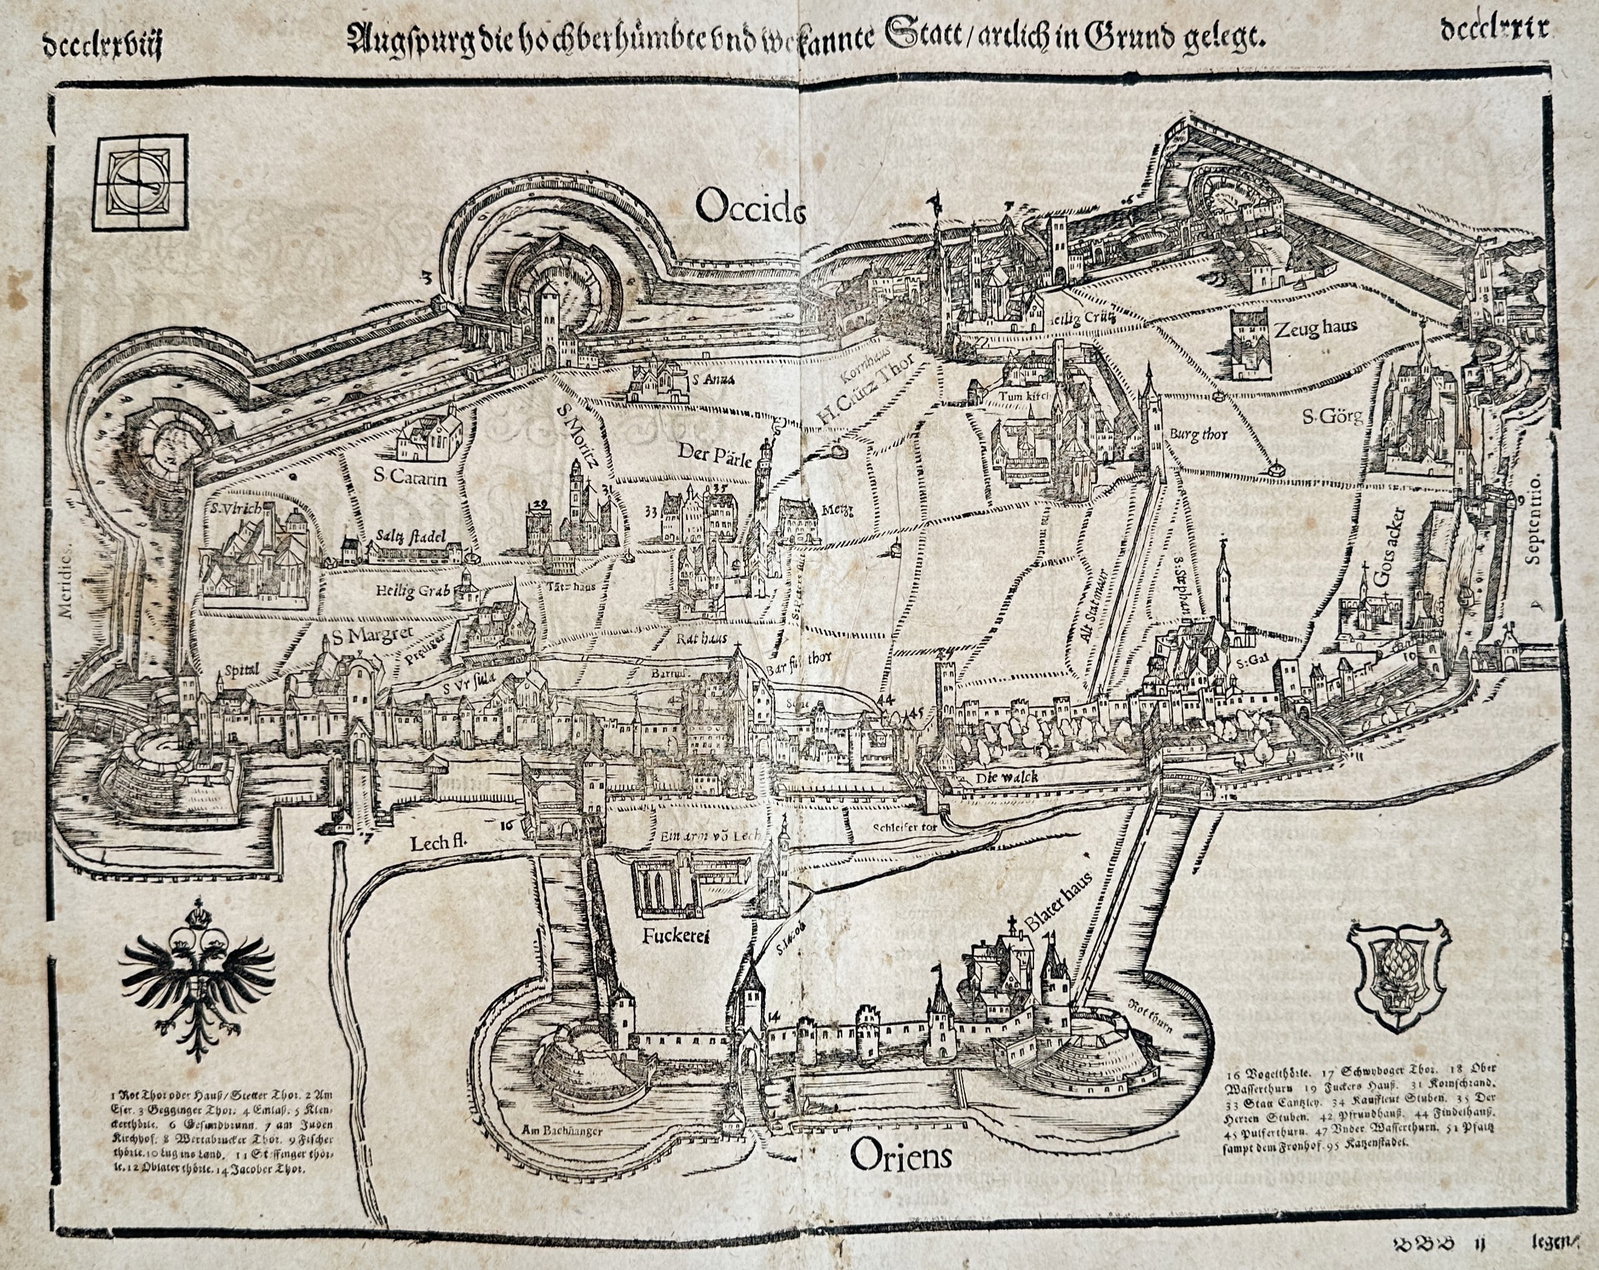 dcccclxxviij
Augspurg die hochberhümbte vnd wekannte Statt / artlich in Grund gelegt.
dcccclxxix
Occidē
3
eilig Crütz
Zeug haus
S Anna
Kornhaus
H. Crütz Thor
Tum kirch
S. Moritz
S. Görg
Burg thor
Der Pärle
S Catarin
S. Vlrich
29
31
33
35
Metzg
9
Saltz stadel
Gots acker
Septentrio.
Meridie.
Heilig Grab
Tātz haus
S. Stephan
Alt Stat maur
S Margret
Prediger
Rathaus
Spital
S Vrsula
Barfus
Bar fus thor
S. Gal
10
44
45
11
Die walck
16
17
Lech fl.
Ein arm vō Lech
Schleifer tor
Fuckerei
S. Iacob
Blater haus
Rot thurn
14
Am Bachanger
Oriens
1 Rot Thor oder Hauß / Stetter Thor. 2 Am
Eser. 3 Gegginger Thor. 4 Einlaß. 5 Klen-
ckerthörle. 6 Gesundbrunn. 7 am Juden
Kirchhof. 8 Wertabrucker Thor. 9 Fischer
thörle. 10 Lug ins Land. 11 Steffinger thör-
le. 12 Oblater thörle. 14 Jacober Thor.
16 Vogelthörle. 17 Schwyboger Thor. 18 Ober
Wasserthurn 19 Fuckers Hauß. 31 Kornschrand.
33 Statt Cantzley. 34 Kauffleut Stuben. 35 Der
Herren Stuben. 42 Pfrundhauß. 44 Findelhauß.
45 Pulferthurn. 47 Vnder Wasserthurn. 51 Pfaltz
sampt dem Fronhof. 95 Katzenstadel.
BBB ij
legen/